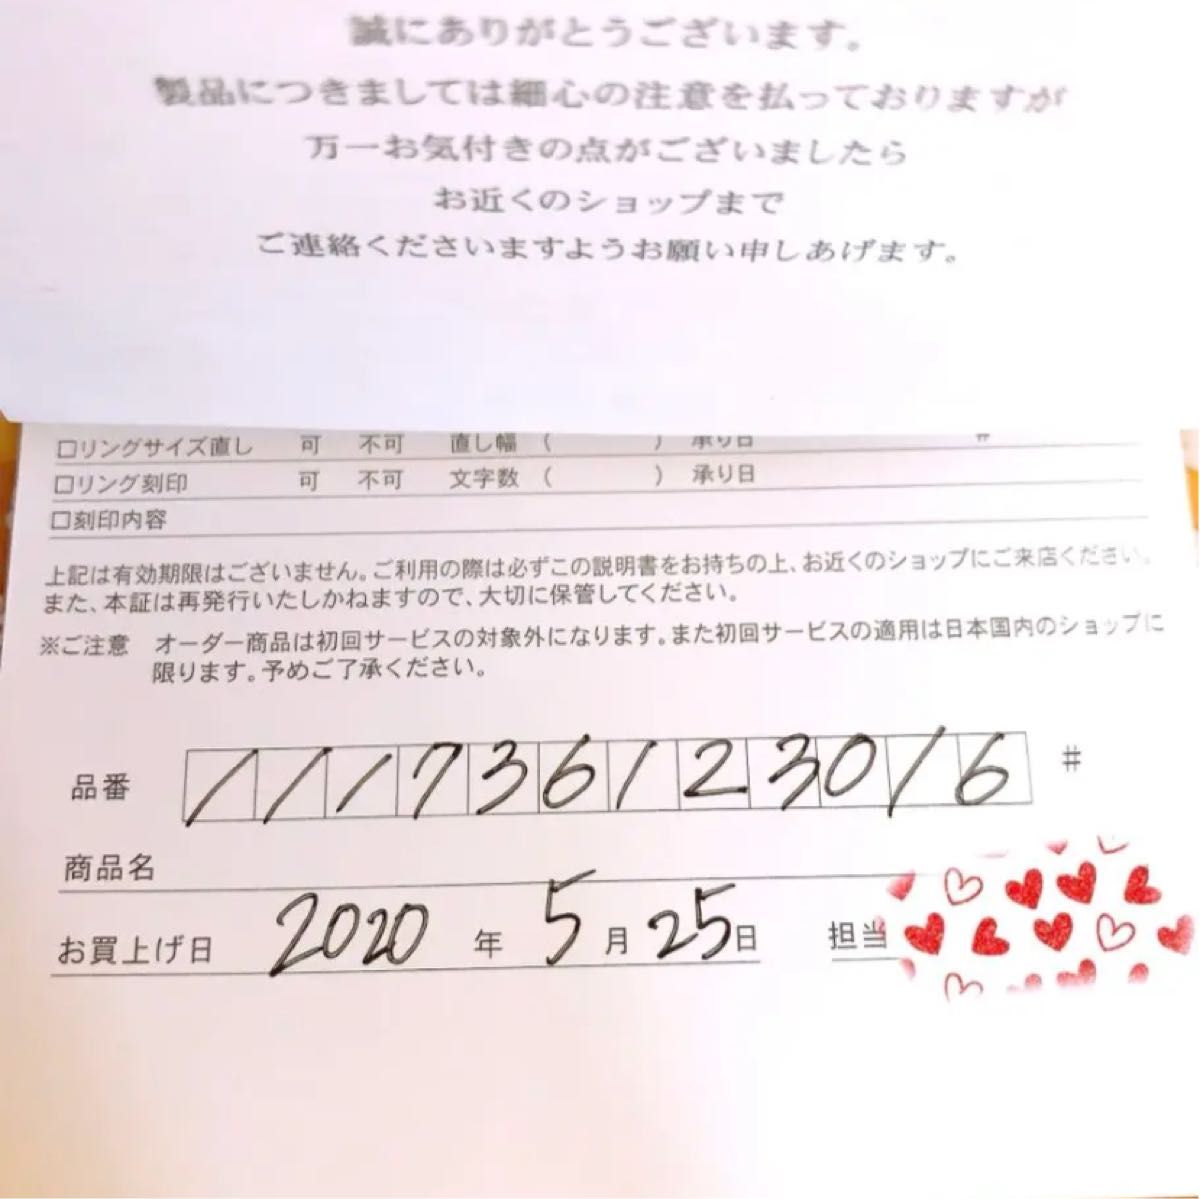 誠にありがとうございます。
製品につきましては細心の注意を払っておりますが
万一お気付きの点がございましたら
お近くのショップまで
ご連絡くださいますようお願い申しあげます。
□リングサイズ直し 可 不可 直し幅 ( ) 承り日 #
□リング刻印 可 不可 文字数 ( ) 承り日
□刻印内容
上記は有効期限はございません。ご利用の際は必ずこの説明書をお持ちの上、お近くのショップにご来店ください。
また、本証は再発行いたしかねますので、大切に保管してください。
※ご注意 オーダー商品は初回サービスの対象外になります。また初回サービスの適用は日本国内のショップに
限ります。予めご了承ください。
品番 111736123016 #
商品名
お買上げ日 2020 年 5 月 25 日 担当